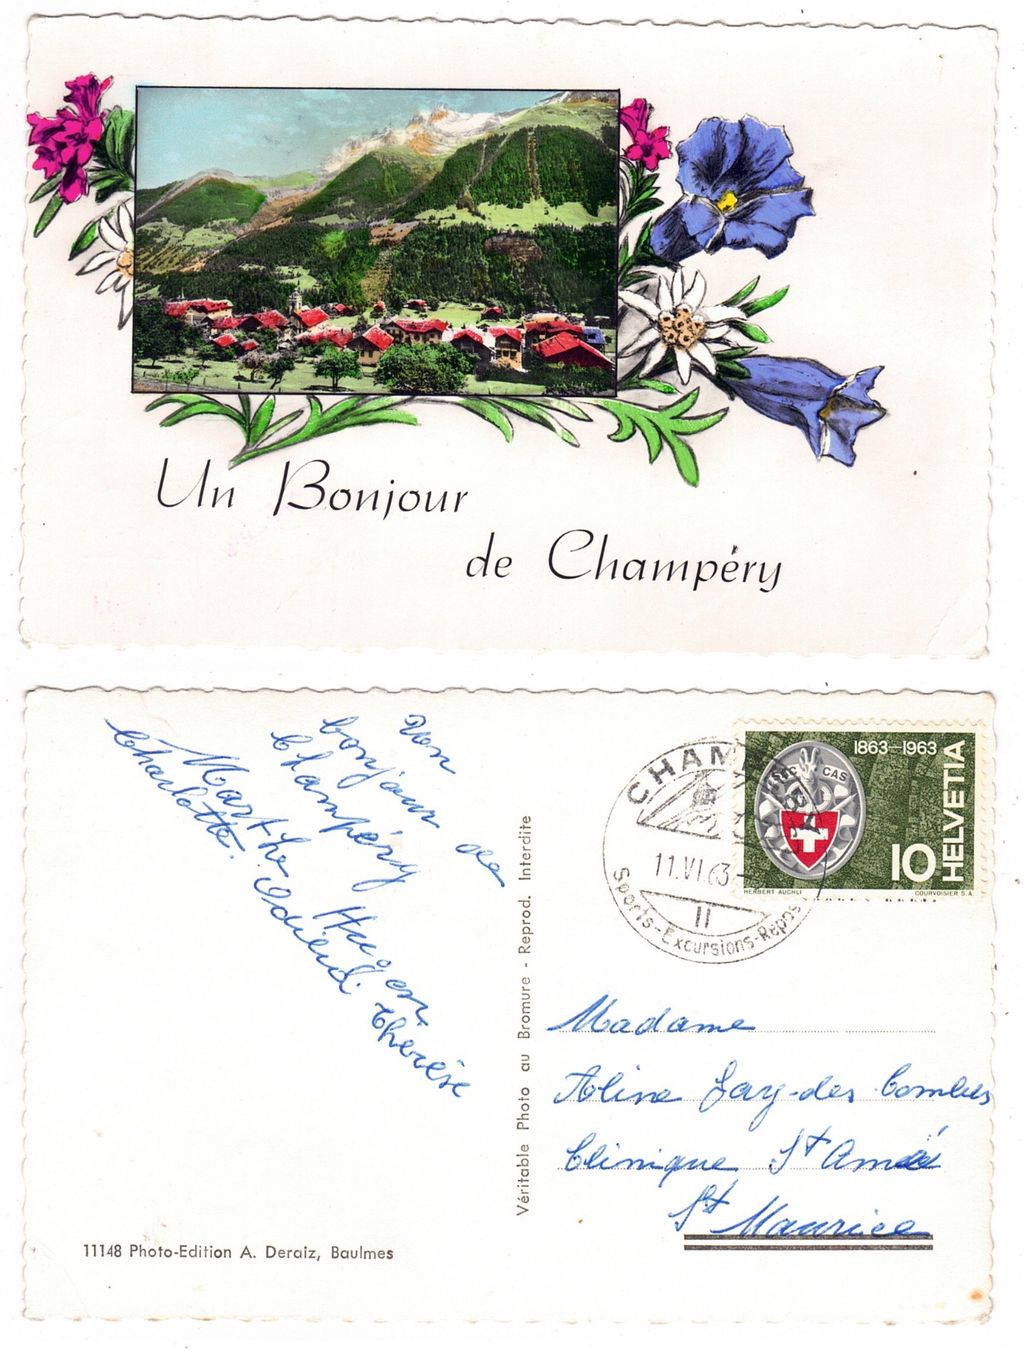 Un Bonjour
de Champéry
bonjour de
Champéry Hugon
Marthe Odile Thérèse
Charlotte.
Véritable Photo au Bromure - Reprod. Interdite
11148 Photo-Edition A. Deraiz, Baulmes
CHAM
11.VI.63-
II
Sports-Excursions-Repos
1863-1963
CAS
10
HELVETIA
HERBERT AUCHLI
COURVOISIER S.A
Madame
Aline Gay-des Combes
Clinique St Amé
St Maurice